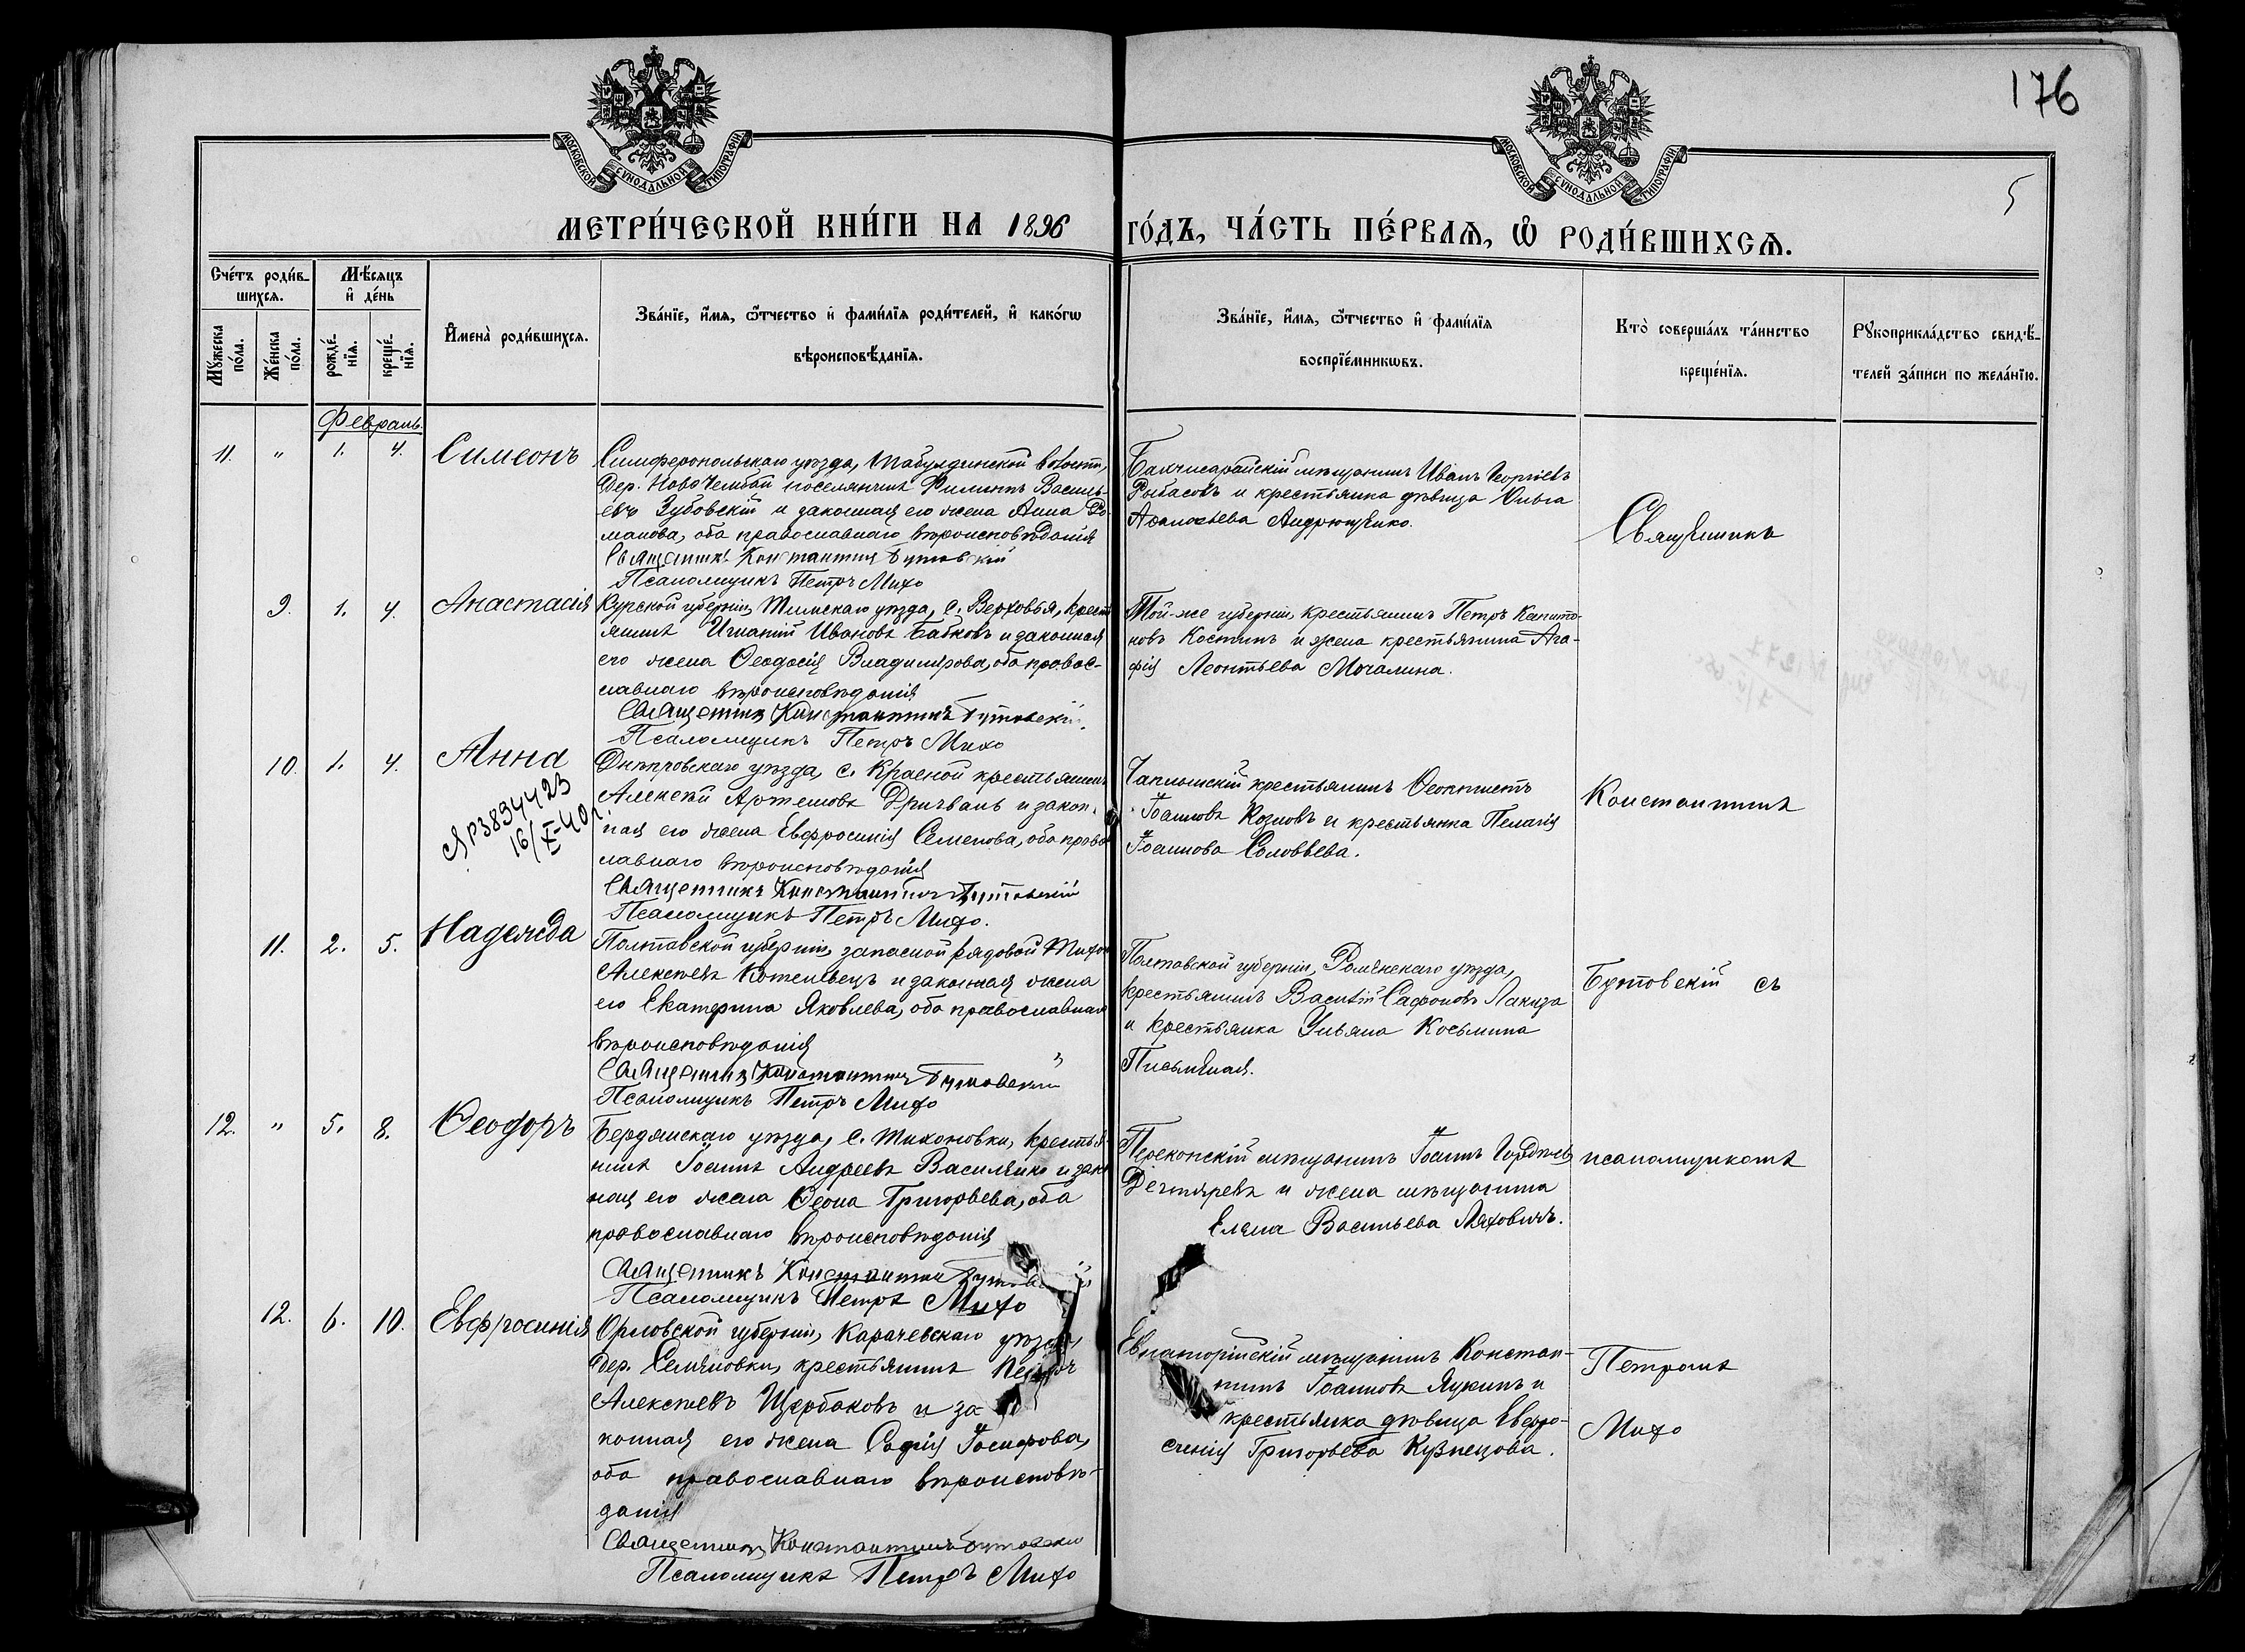 176
5
МОСКОВСКОЙ СѴНОДАЛЬНОЙ ТИПОГРАФІИ
МОСКОВСКОЙ СѴНОДАЛЬНОЙ ТИПОГРАФІИ
МЕТРИ́ЧЕСКОЙ КНИ́ГИ НА 1896 ГО́ДЪ, ЧА́СТЬ ПЕ́РВАѦ, Ѽ РОДИ́ВШИХСѦ.
Сче́тъ роди́в-
шихсѧ.
Мѣ́сѧцъ
и҆ де́нь
Мꙋ́жеска
по́ла.
Же́нска
по́ла.
рожде́-
нїѧ.
креще́-
нїѧ.
И҆мена̀ роди́вшихсѧ.
Зва́нїе, и҆́мѧ, ѻ҆́тчество и҆ фами́лїѧ роди́телей, и҆ како́гѡ
вѣроисповѣ́данїѧ.
Зва́нїе, и҆́мѧ, ѻ҆́тчество и҆ фами́лїѧ
воспрїе́мникѡвъ.
Кто̀ соверша́лъ та́инство
креще́нїѧ.
Рꙋкоприкла́дство свидѣ́-
телей за́писи по жела́нїю.
Февраль.
11. " 1. 4. Симеонъ
Симферопольскаго уѣзда, Табулдинской волости,
дер. Ново Челебой поселянинъ Филиппъ Василь-
евъ Зубовскій и законная его жена Анна Ро-
манова, оба православнаго вѣроисповѣданія
Священникъ Константинъ Бутовскій
Псаломщикъ Петръ Михо
Бахчисарайскій мѣщанинъ Иванъ Георгіевъ
Рыбасовъ и крестьянка дѣвица Ольга
Афанасьева Андрющенко.
Священникъ
9. 1. 4. Анастасія
Курской губерніи, Тимскаго уѣзда, с. Верховья, крест
янинъ Игнатій Ивановъ Бабковъ и законная
его жена Ѳеодосія Владимірова, оба правос-
лавнаго вѣроисповѣданія
Священникъ Константинъ Бутовскій.
Псаломщикъ Петръ Михо
Той-же губерніи, крестьянинъ Петръ Капито-
новъ Костинъ и жена крестьянина Ага-
фія Леонтьева Мочалина.
10. 1. 4. Анна
ЯР3894423
16/X-40г.
Днѣпровскаго уѣзда, с. Красной крестьянинъ
Алексѣй Артемовъ Дричваль и закон-
ная его жена Евфросинія Семенова, оба право
лавнаго вѣроисповѣданія
Священникъ Константинъ Бутовскій
Псаломщикъ Петръ Михо.
Чаплынскій крестьянинъ Ѳеоктистъ
Іоанновъ Козловъ и крестьянка Пелагія
Іоаннова Соловьева.
Константинъ
11. 2. 5. Надежда
Полтавской губерніи, запасной рядовой Тихон
Алексѣевъ Котелевецъ и законная жена
его Екатерина Яковлева, оба православнаго
вѣроисповѣданія
Священникъ Константинъ Бутовскій
Псаломщикъ Петръ Михо
Полтавской губерніи, Роменскаго уѣзда,
крестьянинъ Василій Сафоновъ Лакиза
и крестьянка Ульяна Косьмина
Письменная.
Бутовскій съ
12. " 5. 8. Ѳеодоръ
Бердянскаго уѣзда, с. Тихоновки, крестья-
нинъ Іоаннъ Андреевъ Василенко и зако
ная его жена Ѳеона Григорьева, оба
православнаго вѣроисповѣданія
Священникъ Константинъ Бутов
Псаломщикъ Петръ Михо
Перекопскій мѣщанинъ Іоаннъ Гордѣевъ
Дегтяревъ и жена мѣщанина
Елена Васильева Маховичъ.
псаломщикомъ
12. 6. 10. Евфросинія
Орловской губерніи, Карачевскаго уѣзда,
дер. Семеновки, крестьянинъ Петръ
Алексѣевъ Щербаковъ и за
конная его жена Софія Іосифова,
оба православнаго вѣроисповѣ-
данія
Священникъ Константинъ Бутовскій
Псаломщикъ Петръ Михо
Евпаторійскій мѣщанинъ Констан-
тинъ Іоанновъ Лукинъ и
крестьянка дѣвица Евфро-
синія Григорьева Кузнецова.
Петромъ
Михо